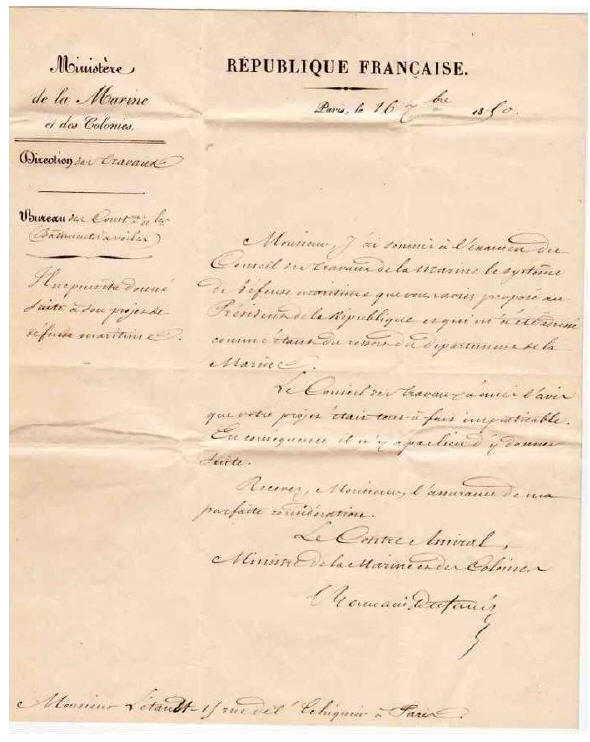 Ministère
de la Marine
et des Colonies.
Direction des travaux
Bureau des Const
Bâtiments à voiles
Il ne peut être donné
suite à son projet de
défense maritime.
RÉPUBLIQUE FRANÇAISE.
Paris, le 16 7bre 1850.
Monsieur, J'ai soumis à l'examen du
Conseil des travaux de la marine le système
de défense maritime que vous aviez proposé au
Président de la République et qui m'a été
comme étant du ressort du département de la
Marine.
Le Conseil des travaux a émis l'avis
que votre projet était tout à fait impraticable.
En conséquence il n'y a pas lieu d'y donner
suite.
Recevez, Monsieur, l'assurance de ma
parfaite considération.
Le Contre Amiral,
Ministre de la Marine et des Colonies
Romain Desfossés
Monsieur Létault 15 rue de l'Echiquier à Paris.